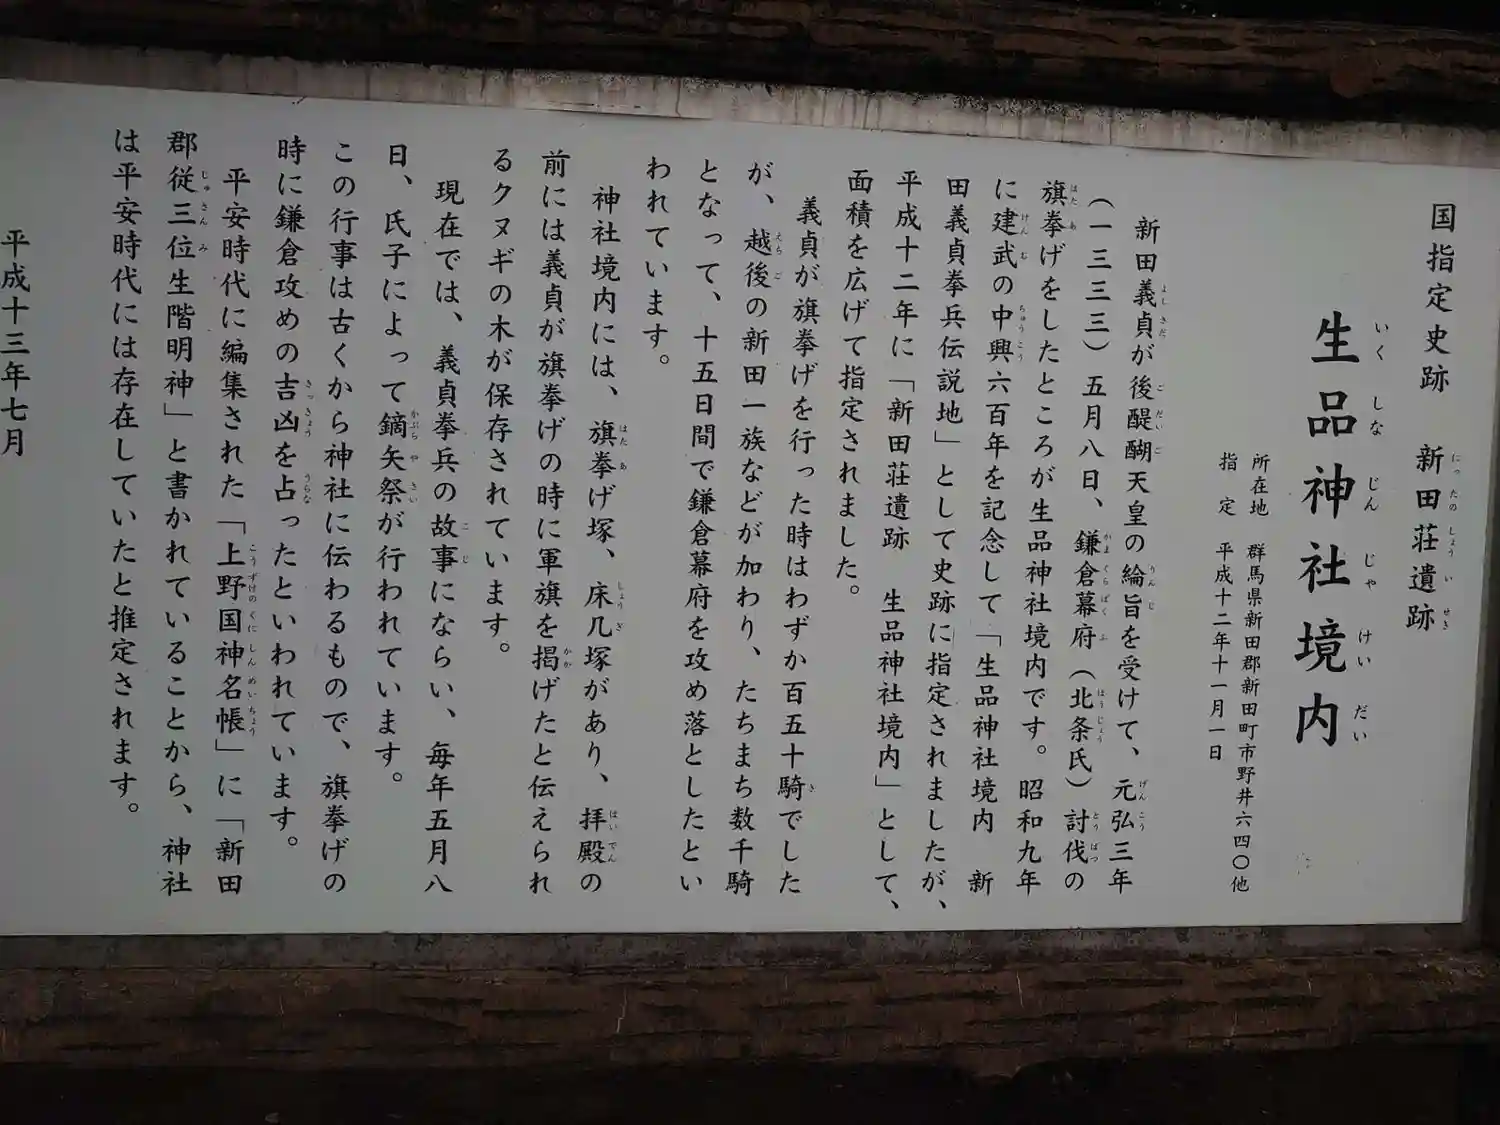 国指定史跡　新田荘遺跡
生品神社境内
所在地　群馬県新田郡新田町市野井六四〇他
指　定　平成十二年十一月一日
新田義貞が後醍醐天皇の綸旨を受けて、元弘三年
（一三三三）五月八日、鎌倉幕府（北条氏）討伐の
旗挙げをしたところが生品神社境内です。昭和九年
に建武の中興六百年を記念して「生品神社境内　新
田義貞挙兵伝説地」として史跡に指定されましたが、
平成十二年に「新田荘遺跡　生品神社境内」として、
面積を広げて指定されました。
義貞が旗挙げを行った時はわずか百五十騎でした
が、越後の新田一族などが加わり、たちまち数千騎
となって、十五日間で鎌倉幕府を攻め落としたとい
われています。
神社境内には、旗挙げ塚、床几塚があり、拝殿の
前には義貞が旗挙げの時に軍旗を掲げたと伝えられ
るクヌギの木が保存されています。
現在では、義貞挙兵の故事にならい、毎年五月八
日、氏子によって鏑矢祭が行われています。
この行事は古くから神社に伝わるもので、旗挙げの
時に鎌倉攻めの吉凶を占ったといわれています。
平安時代に編集された「上野国神名帳」に「新田
郡従三位生階明神」と書かれていることから、神社
は平安時代には存在していたと推定されます。
平成十三年七月